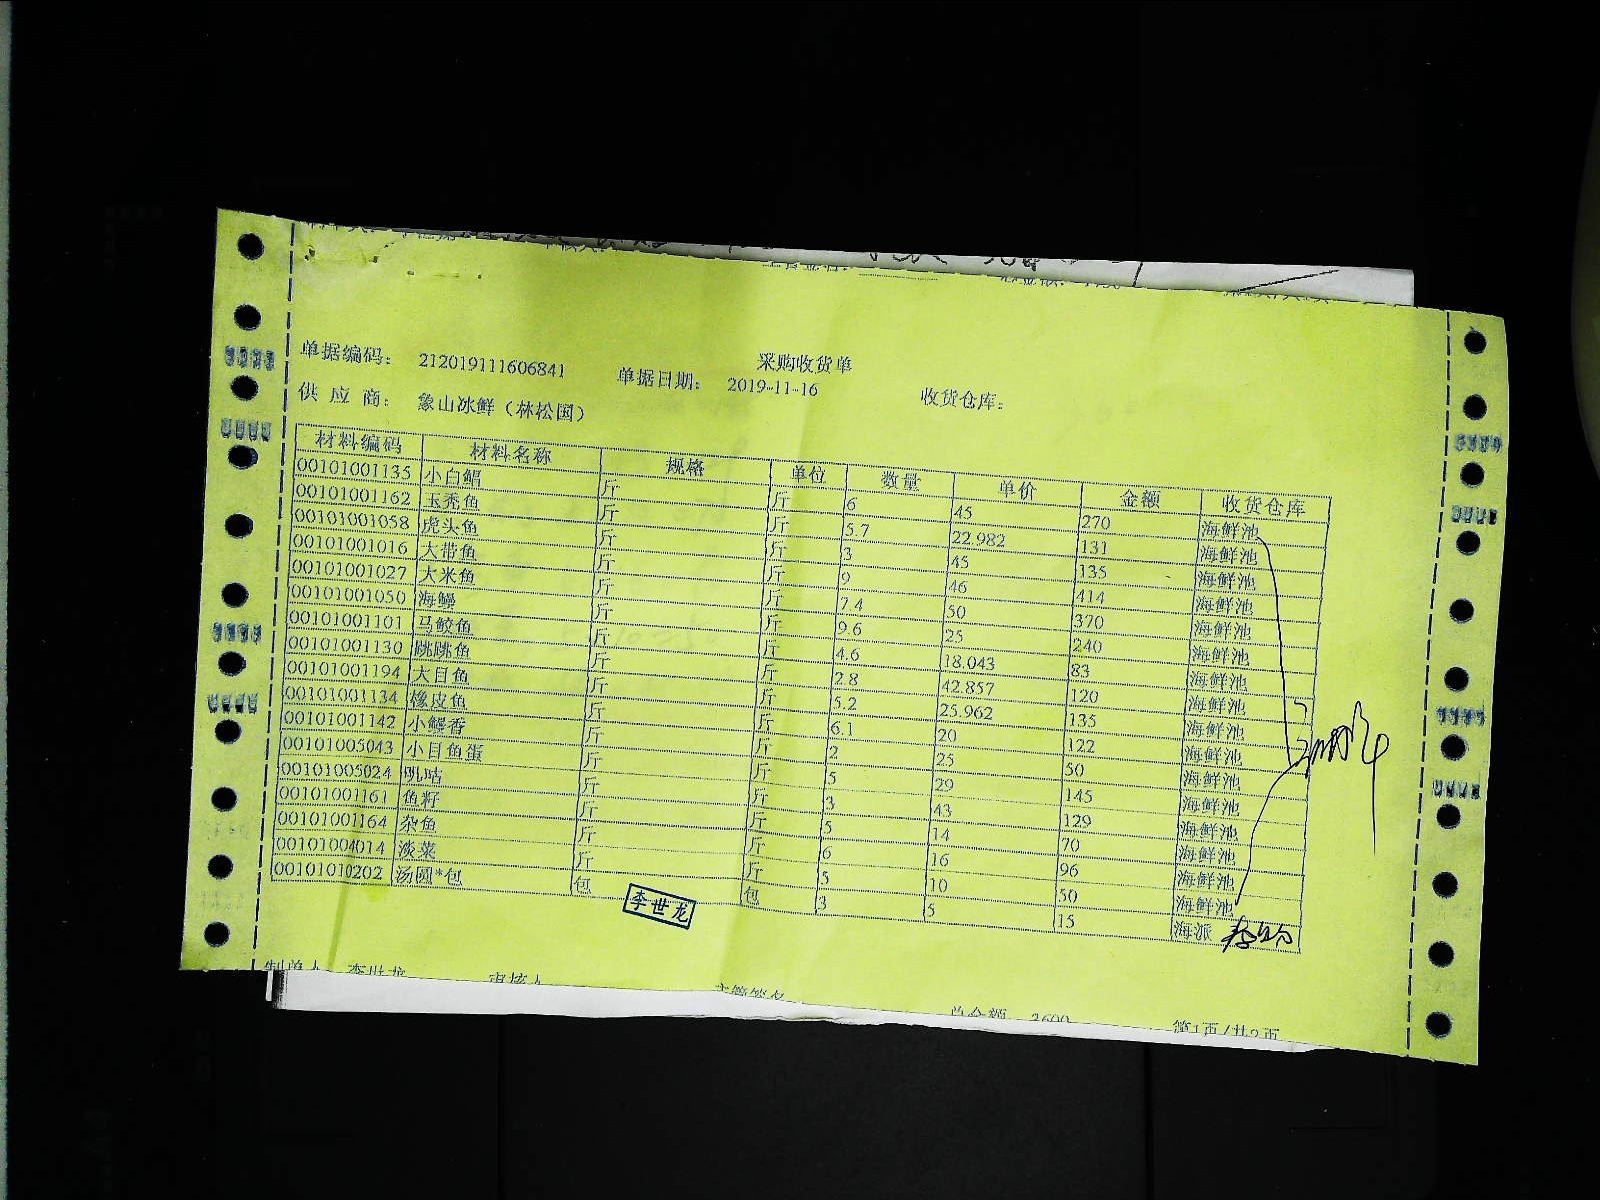 采购收货单
单据编码： 212019111606841 单据日期： 2019-11-16 收货仓库：
供 应 商： 象山冰鲜（林松国）
材料编码 材料名称 规格 单位 数量 单价 金额 收货仓库
00101001135 小白鲳 斤 斤 6 45 270 海鲜池
00101001162 玉秃鱼 斤 斤 5.7 22.982 131 海鲜池
00101001058 虎头鱼 斤 斤 3 45 135 海鲜池
00101001016 大带鱼 斤 斤 9 46 414 海鲜池
00101001027 大米鱼 斤 斤 7.4 50 370 海鲜池
00101001050 海鳗 斤 斤 9.6 25 240 海鲜池
00101001101 马鲛鱼 斤 斤 4.6 18.043 83 海鲜池
00101001130 跳跳鱼 斤 斤 2.8 42.857 120 海鲜池
00101001194 大目鱼 斤 斤 5.2 25.962 135 海鲜池
00101001134 橡皮鱼 斤 斤 6.1 20 122 海鲜池
00101001142 小鳗香 斤 斤 2 25 50 海鲜池
00101005043 小目鱼蛋 斤 斤 5 29 145 海鲜池
00101005024 吼咕 斤 斤 3 43 129 海鲜池
00101001161 鱼籽 斤 斤 5 14 70 海鲜池
00101001164 杂鱼 斤 斤 6 16 96 海鲜池
00101004014 淡菜 斤 斤 5 10 50 海鲜池
00101010202 汤圆*包 包 包 3 5 15 海派
李世龙
制单人 李世龙 审核人 主管签名 总金额 2600 第1页/共2页